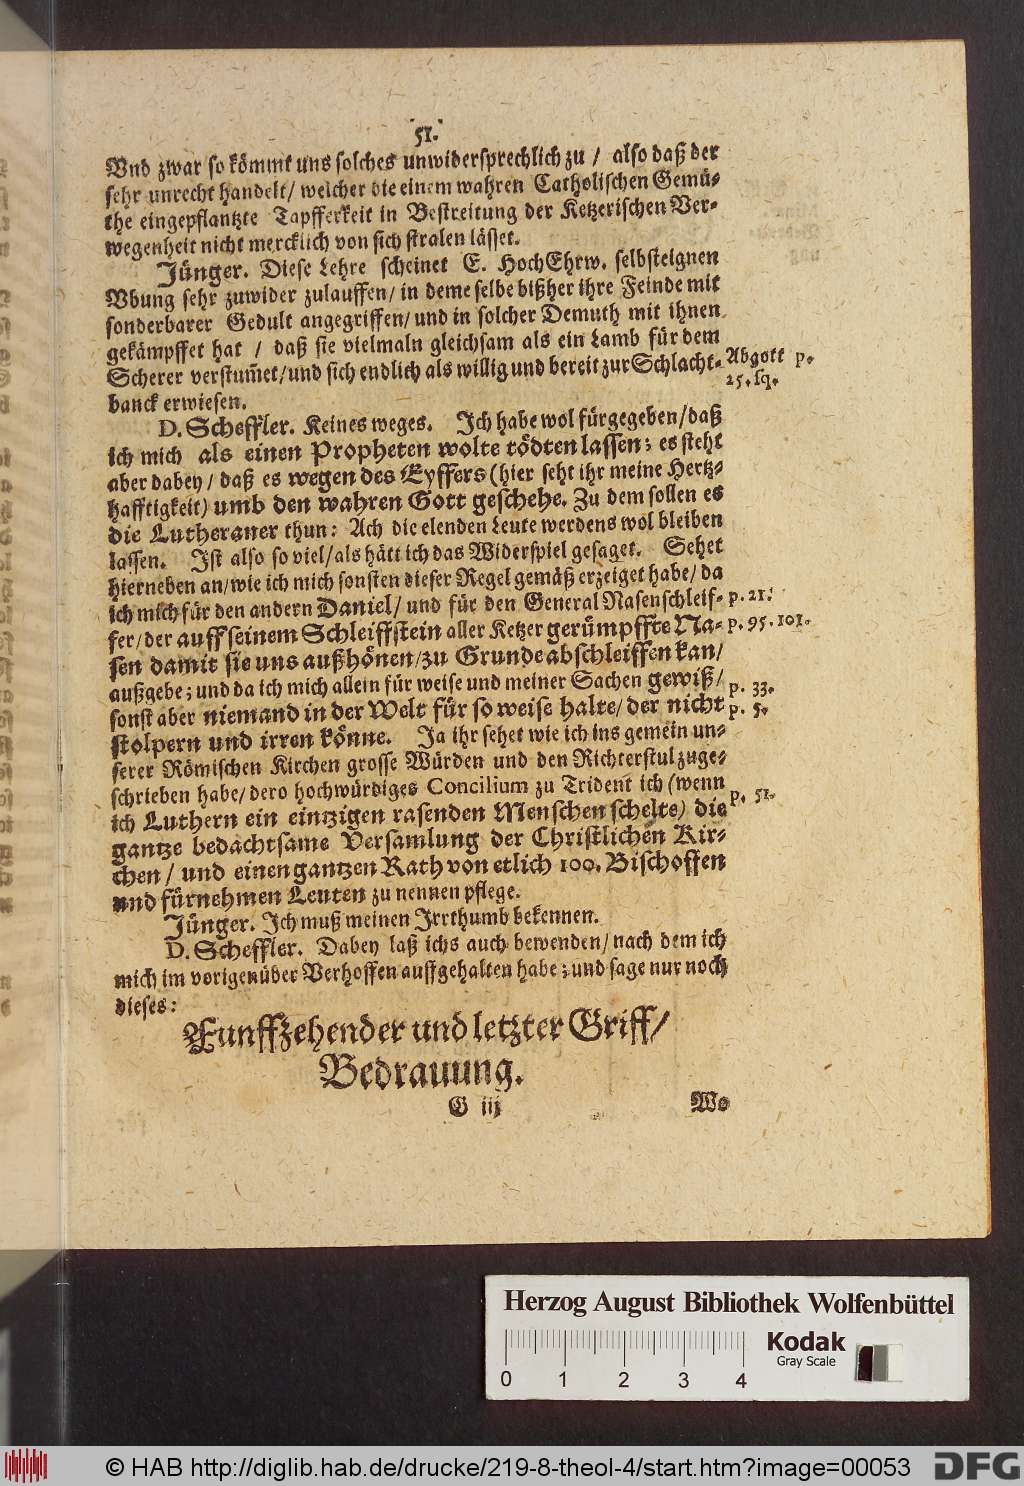 51.
Und zwar so kömmt uns solches unwidersprechlich zu / also daß der
sehr unrecht handelt / welcher die einem wahren Catholischen Gemü-
the eingepflantzte Tapfferkeit in Bestreitung der Ketzerischen Ver-
wegenheit nicht mercklich von sich stralen lässet.
Jünger. Diese Lehre scheinet E. HochEhrw. selbsteignen
Ubung sehr zuwider zulauffen / in deme selbe bißher ihre Feinde mit
sonderbarer Gedult angegriffen / und in solcher Demuth mit ihnen
gekämpffet hat / daß sie vielmaln gleichsam als ein Lamb für dem
Scherer verstum̃et / und sich endlich als willig und bereit zur Schlacht-
Abgott p.
25. sq.
banck erwiesen.
D. Scheffler. Keines weges. Ich habe wol fürgegeben / daß
ich mich als einen Propheten wolte tödten lassen; es steht
aber dabey / daß es wegen des Eyffers (hier seht ihr meine Hertz-
hafftigkeit) umb den wahren Gott geschehe. Zu dem sollen es
die Lutheraner thun: Ach die elenden Leute werdens wol bleiben
lassen. Ist also so viel / als hätt ich das Widerspiel gesaget. Sehet
hierneben an / wie ich mich sonsten dieser Regel gemäß erzeiget habe / da
ich mich für den andern Daniel / und für den General Nasenschleif-
p. 21.
fer / der auff seinem Schleiffstein aller Ketzer gerümpffte Na-
p. 95. 101.
sen damit sie uns außhönen / zu Grunde abschleiffen kan /
außgebe; und da ich mich allein für weise und meiner Sachen gewiß /
p. 33.
sonst aber niemand in der Welt für so weise halte / der nicht
p. 5.
stolpern und irren könne. Ja ihr sehet wie ich ins gemein un-
serer Römischen Kirchen grosse Würden und den Richterstul zuge-
schrieben habe / dero hochwürdiges Concilium zu Trident ich (wenn
p. 51.
ich Luthern ein eintzigen rasenden Menschen schelte) die
gantze bedachtsame Versamlung der Christlichen Kir-
chen / und einen gantzen Rath von etlich 100. Bischoffen
und fürnehmen Leuten zu nennen pflege.
Jünger. Ich muß meinen Irrthumb bekennen.
D. Scheffler. Dabey laß ichs auch bewenden / nach dem ich
mich im vorigen über Verhoffen auffgehalten habe; und sage nur noch
dieses:
Funffzehender und letzter Griff /
Bedrauung.
G iij
Wo
Herzog August Bibliothek Wolfenbüttel
Kodak
Gray Scale
0 1 2 3 4
© HAB http://diglib.hab.de/drucke/219-8-theol-4/start.htm?image=00053
DFG